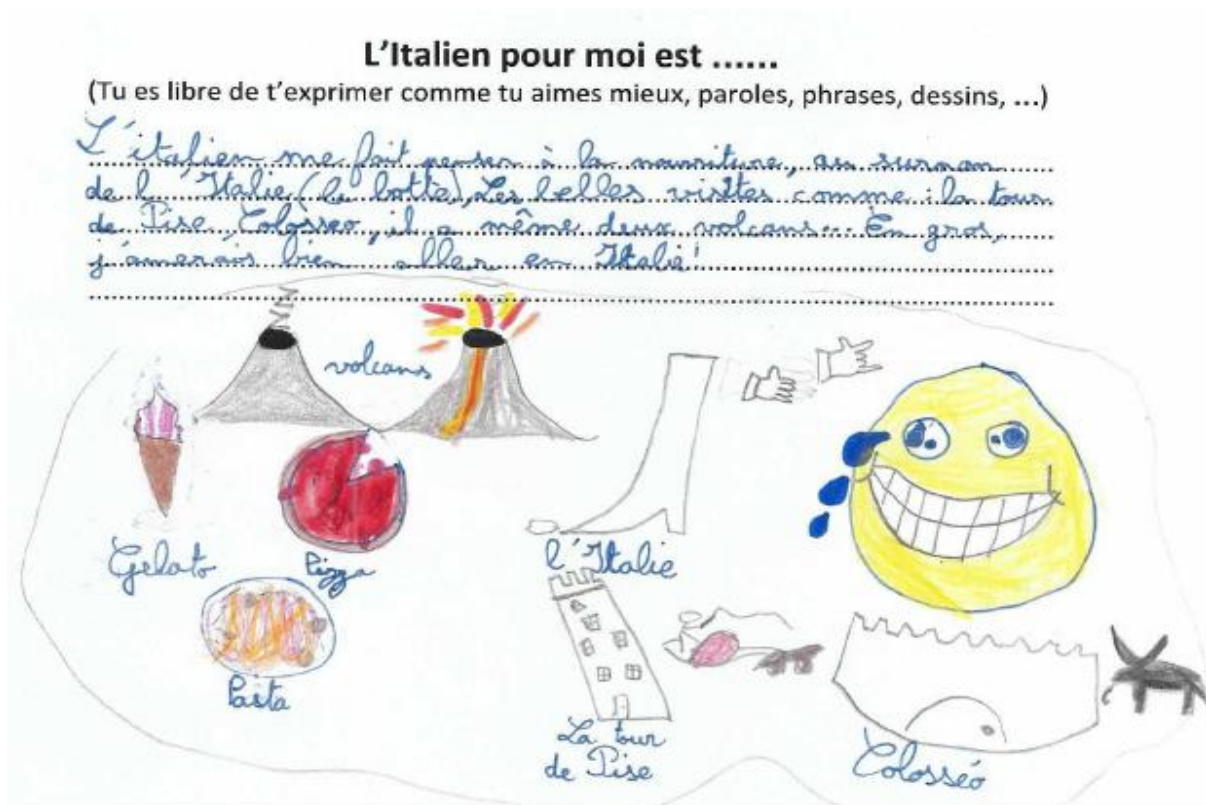 L'Italien pour moi est ......
(Tu es libre de t'exprimer comme tu aimes mieux, paroles, phrases, dessins, ...)
L'italien me fait penser à la nourriture, au surnom
de l'Italie (la botte), Les belles visites comme : la tour
de Pise, Colòsseo, il a même deux volcans... En gros,
j'amerais bien aller en Italie!
volcans
Gelato
Pizza
l'Italie
Pasta
La tour
de Pise
Colosséo